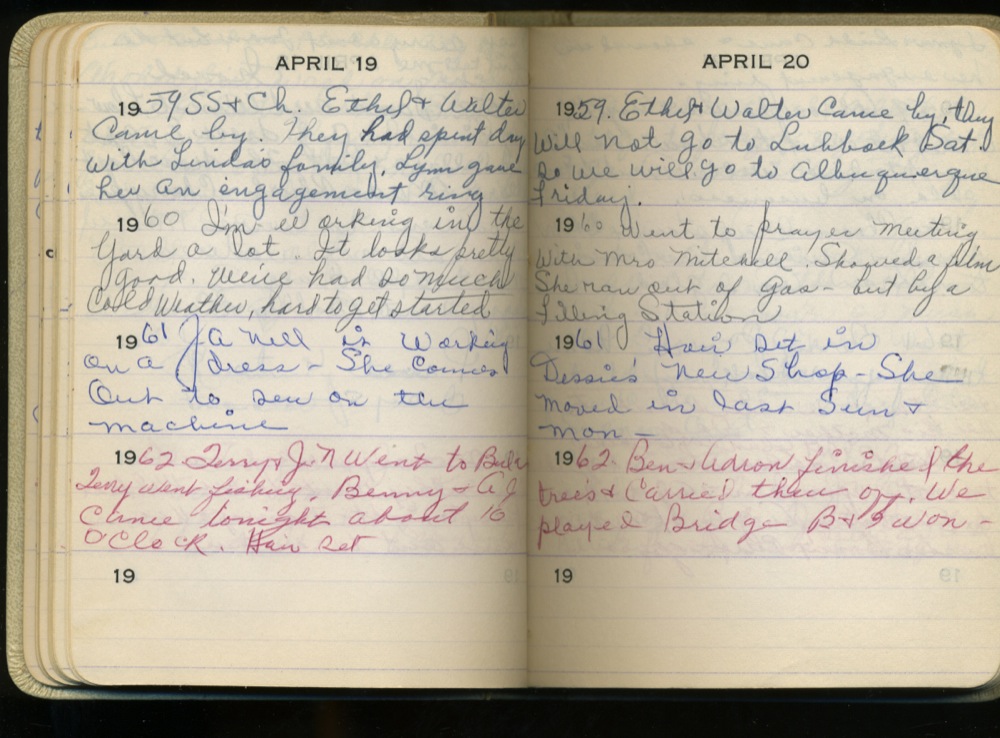 APRIL 19
1959 SS + Ch. Ethel + Walter
Came by. They had spent day
with Lindas family, Lynn gave
her an engagement ring
1960 I'm working in the
Yard a lot. It looks pretty
good. We've had so much
Cold Weather, hard to get started
1961 Ja Nell is Working
on a dress - She Comes
Out to sew on the
machine
1962 Terry + J. N Went to
Terry went fishing. Benny + A J
Came tonight about 10
O'Clock. Hair set
19
APRIL 20
1959. Ethel + Walter Came by, they
will not go to Lubbock Sat.
so we will go to Albuquerque
Friday.
1960 Went to prayer meeting
with Mrs Mitchell. Showed a film
She ran out of Gas - but by a
Filling Station
1961 Hair set in
Dessie's New Shop - She
moved in last Sun +
mon -
1962 Ben + finished the
trees + Carried them off. We
played Bridge B + I won -
19